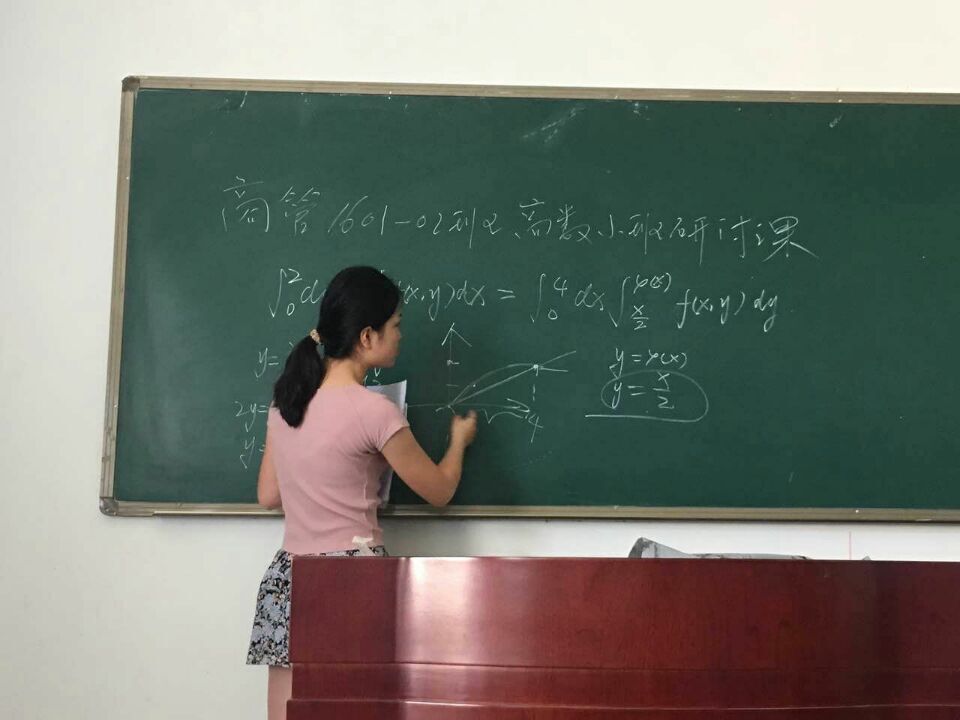 商管1601-02班高数小班研讨课
∫₀² d f(x,y)dx = ∫₀⁴ dx ∫_{x/2}^{φ(x)} f(x,y) dy
y= y=φ(x)
2y= y=x/2
y= 4